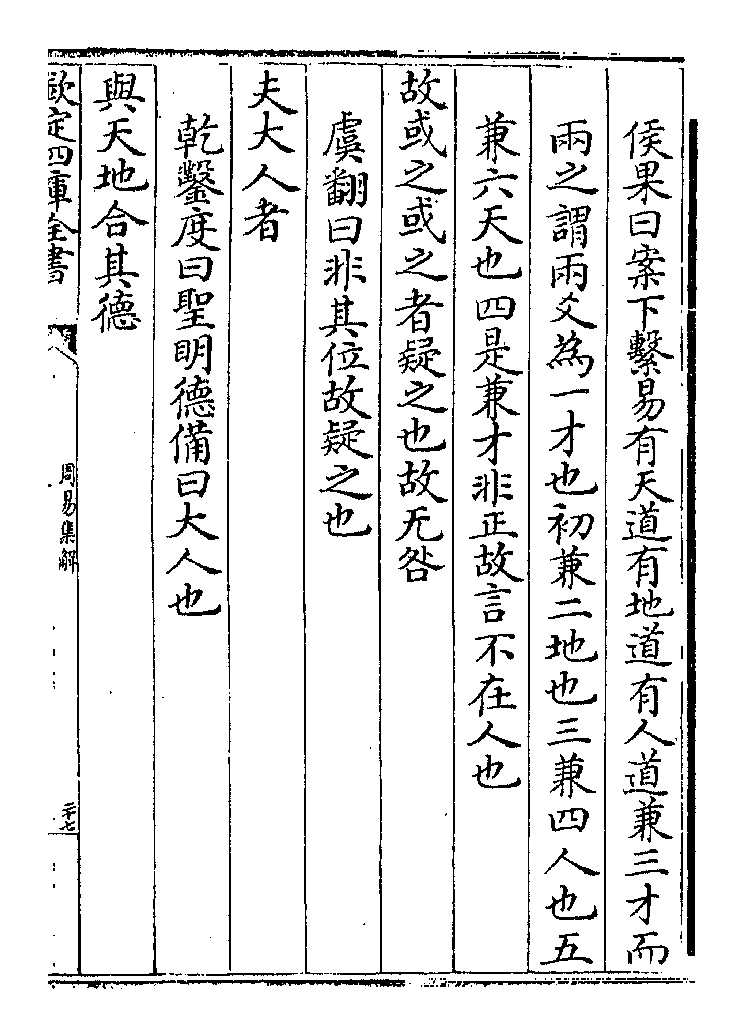 侯果曰案下繫易有天道有地道有人道兼三才而
兩之謂兩爻為一才也初兼二地也三兼四人也五
兼六天也四是兼才非正故言不在人也
故或之或之者疑之也故无咎
虞翻曰非其位故疑之也
夫大人者
乾鑿度曰聖明德備曰大人也
與天地合其德
欽定四庫全書
周易集解
二十七